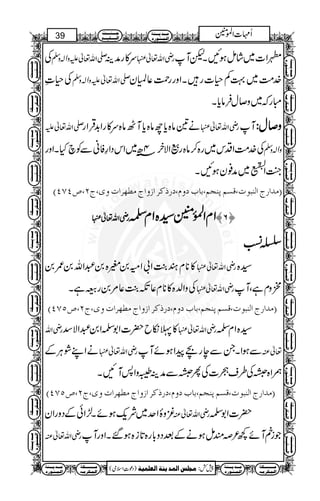 39
اُمہات المؤمنین
مطہرات میں شامل ہوئیں۔ لیکن آپ رضی اللہ تعالیٰ عنہا سرکار مدینہ صلی اللہ تعالیٰ علیہ والہ وسلم کی
خدمت میں بہت کم حیات رہیں۔ اور رحمت عالمیان صلی اللہ تعالیٰ علیہ والہ وسلم کی حیاتِ
مبارکہ میں وصال فرمایا۔
وصال: آپ رضی اللہ تعالیٰ عنہا نے تین ماہ یا چھ ماہ یا آٹھ ماہ سرکار ابد قرار صلی اللہ تعالیٰ علیہ
والہ وسلم کی خدمت اقدس میں رہ کر ماہ ربیع الآخر ۴ھ میں اس دار فانی سے کوچ کیا۔ اور
جنت البقیع میں مدفون ہوئیں۔
(مدارج النبوت،قسم پنجم،باب دوم،درذکر ازواج مطہرات وی،ج۲،ص۴۷٤)
﴿۶﴾ ام المؤمنین سیدہ ام سلمہ رضی اللہ تعالیٰ عنہا
سلسلہ نسب
سیدہ رضی اللہ تعالیٰ عنہا کا نام ہند بنت ابی امیہ بن مغیرہ بن عبداللہ بن عمر بن
مخزوم ہے، آپ رضی اللہ تعالیٰ عنہا کی والدہ کا نام عاتکہ بنت عامر بن ربیعہ ہے۔
(مدارج النبوت،قسم پنجم،باب دوم،درذکر ازواج مطہرات وی،ج۲،ص۴۷۵)
سیدہ ام سلمہ رضی اللہ تعالیٰ عنہا کا پہلا نکاح حضرت ابو سلمہ ابن عبد الاسد رضی اللہ
تعالیٰ عنہ سے ہوا۔ جن سے چار بچے پیدا ہوئے آپ رضی اللہ تعالیٰ عنہا نے اپنے شوہر کے
ہمراہ حبشہ کی طرف ہجرت کی پھر حبشہ سے مدینہ طیبہ واپس آئیں۔
(مدارج النبوت،قسم پنجم،باب دوم،درذکر ازواج مطہرات وی،ج۲،ص۴۷۵)
حضرت ابو سلمہ رضی اللہ تعالیٰ عنہ غزوۂ احد میں شریک ہوئے۔ لڑائی کے دوران
جو زخم آئے کچھ عرصہ مندمل ہونے کے بعد دوبارہ تازہ ہو گئے۔ اور آپ رضی اللہ تعالیٰ عنہ
پیش کش: مجلس المدینۃ العلمیۃ (دعوت اسلامی)